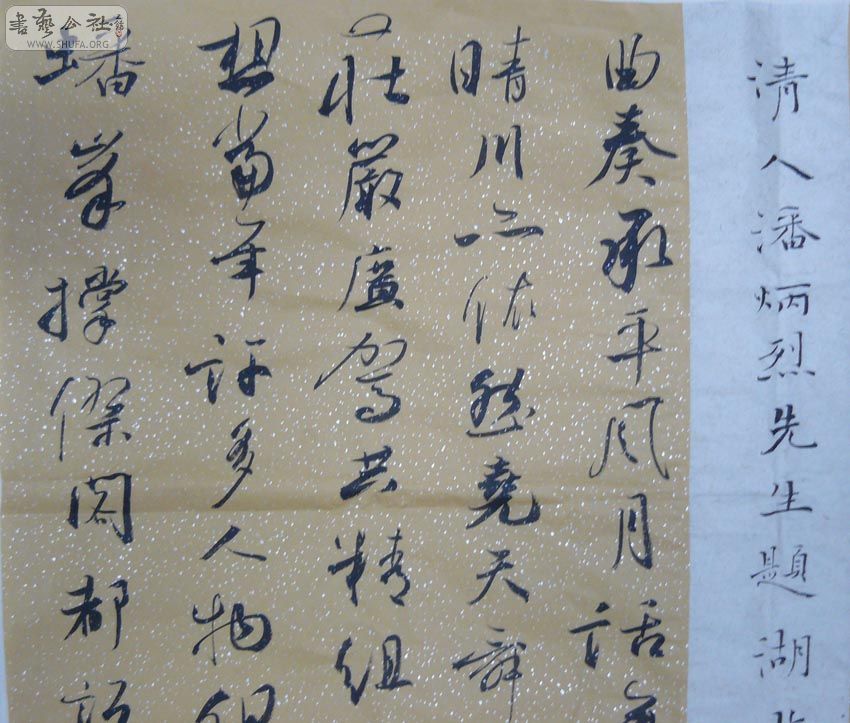 清人潘炳烈先生題湖北
曲奏承平風月話
晴川依然堯天舜
莊嚴廣駕共精組
想當年許多人物
蟠峯撐傑閣都說
書藝公社
WWW.SHUFA.ORG